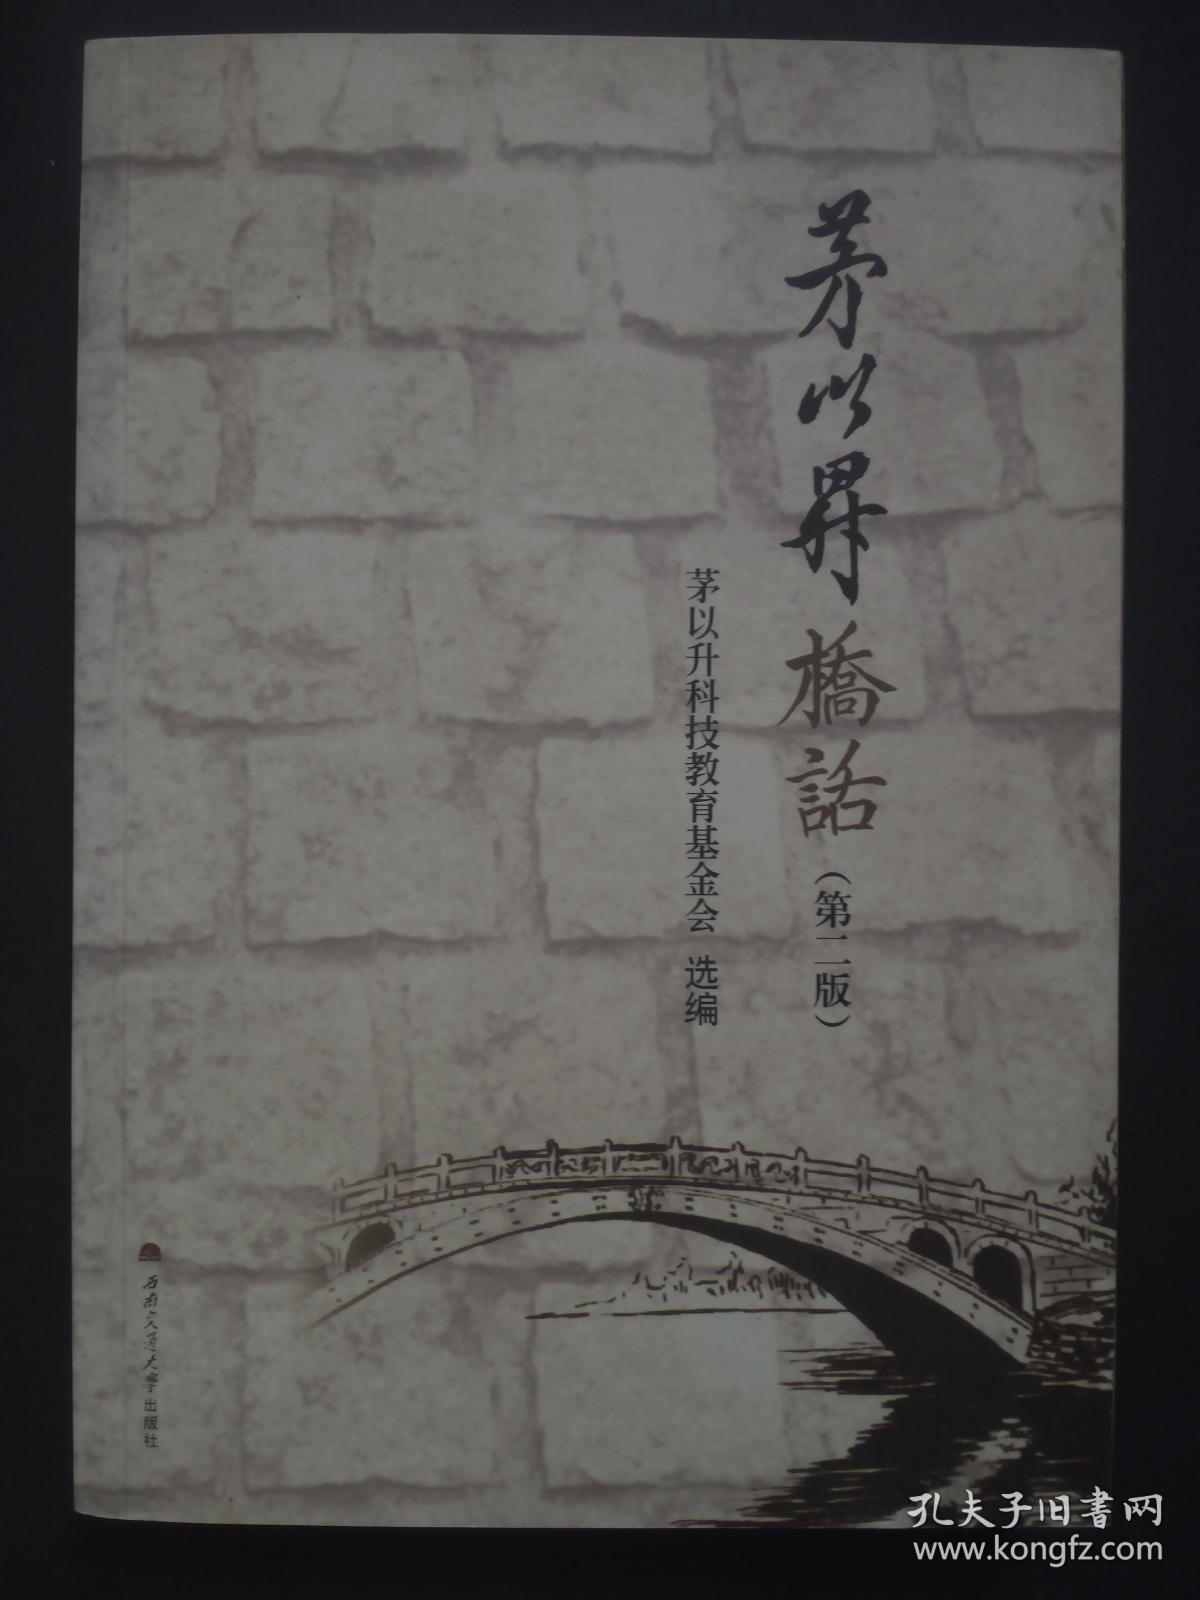 茅以昇橋話(第二版)
茅以升科技教育基金会 选编
西南交通大學出版社
孔夫子旧書网
www.kongfz.com